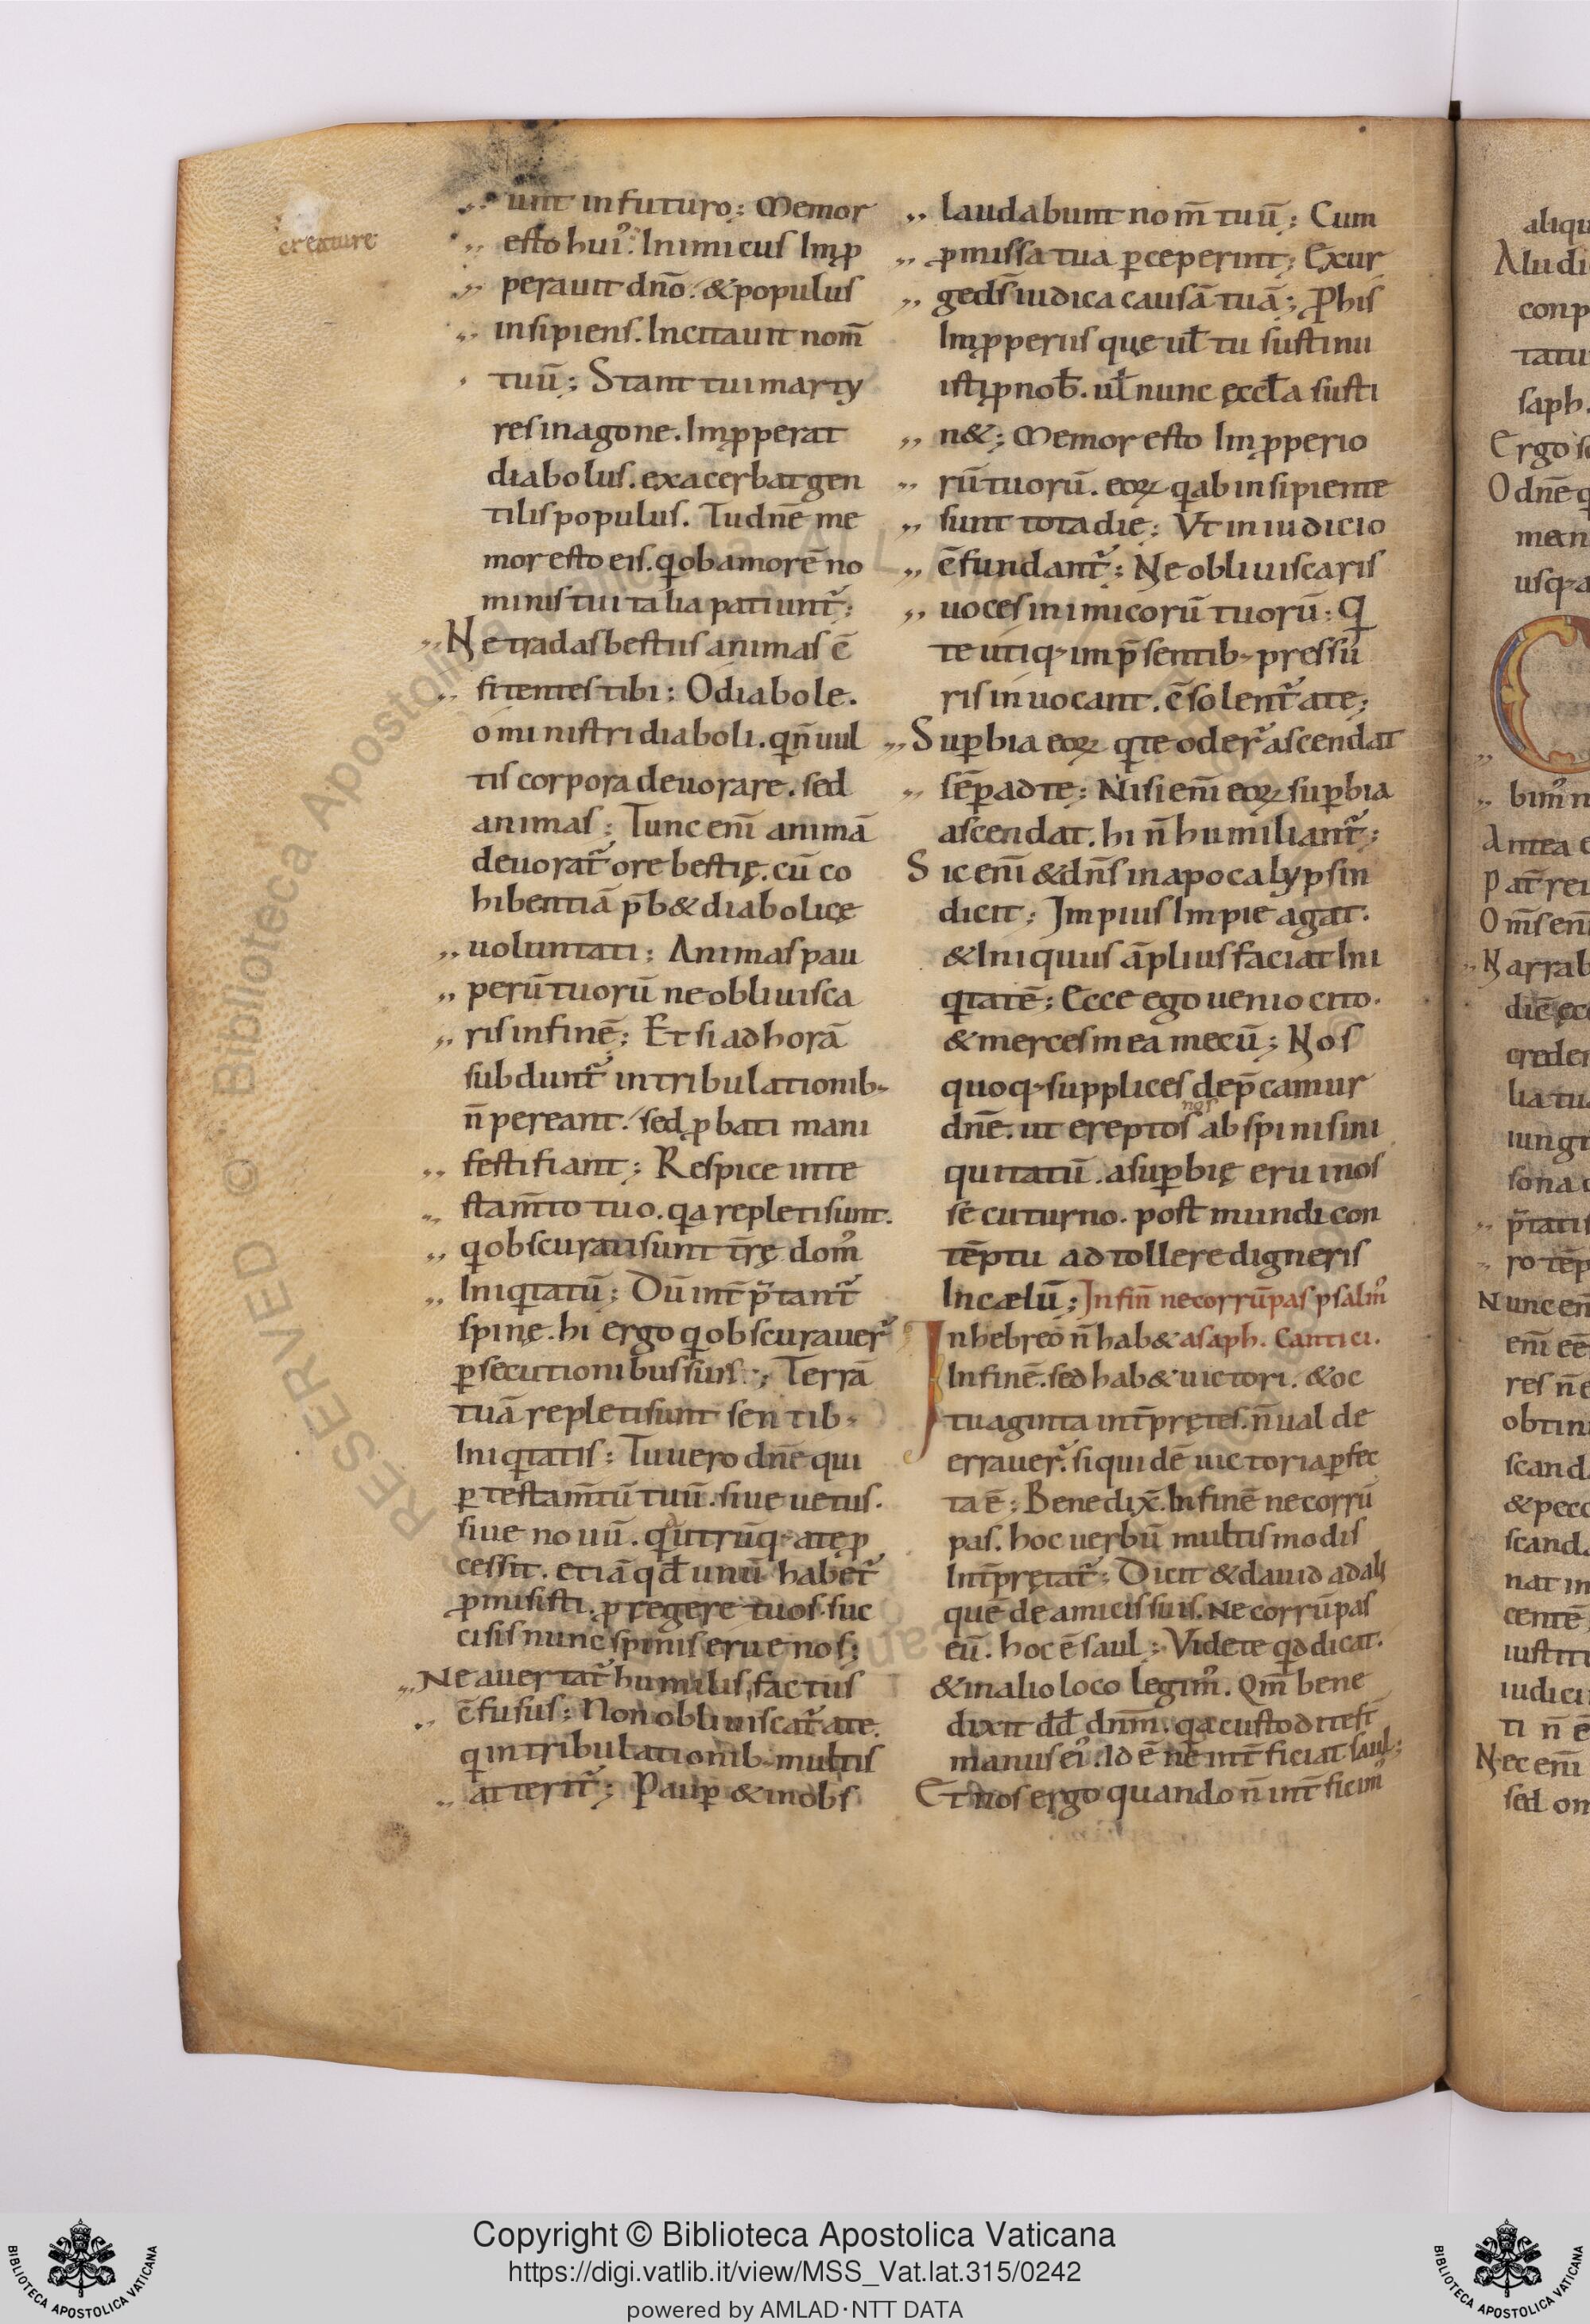 creature
unt in futuro; Memor
esto hui᾿. Inimicus Imꝓ
perauit dño. &populus
insipiens. Incitauit nom̄
tuū; Stant tui marty
res in agone. Imꝓperat
diabolus. exacerbat gen
tilis populus. Tu dnē me
mor esto eis. q̇ ob amorē no
minis tui talia patiunt᷑;
Ne tradas bestiis animas c̄
fitentes tibi; O diabole.
o ministri diaboli. q̇ n̄ uul
tis corpora deuorare. sed
animas; Tunc eni̅ animā
deuorat᷑ ore bestię. cū co
hibentiā p̄b& diabolicę
uoluntati; Animas pau
perū tuorū ne obliuisca
ris in finē; Et si ad horā
subdunt᷑ in tribulationib;
n̄ pereant. sed ꝓbati mani
festi fiant; Respice in te
stam̄to tuo. qa repleti sunt.
q̇ obscurati sunt tr̄ę dom᾿
Iniq̇tatū; Dū int̄p̄tant᷑
spinę. hi ergo q̇ obscurauer᷑
ꝑsecutionibus suis; Terrā
tuā repleti sunt sentib;
Iniq̇tatis; Tu uero dnē qui
ꝑ testam̄tū tuū. siue uetus.
siue nouū. q̇a utrūq; a te ꝓ
cessit. etiā qđ unū habet᷑
ꝓmisisti. ꝓtegere tuos. suc
cisis nunc spinis erue nos;
Ne auertat᷑ humilis factus
c̄fusus; Non obliuiscat᷑ a te.
q̇ in tribulationib; multis
atterit᷑; Pauꝑ & inobs
laudabunt nom̄ tuū; Cum
ꝓmissa tua ꝑceperint; Exur
ge dš iudica causā tuā; Ꝓ his
Imꝓperiis quę ul̄ tu sustinu
isti ꝓ nob̄. ul̄ nunc ęccl̄a susti
n&; Memor esto Imꝓperio
rū tuorū. eoꝝ q̇ ab insipiente
sunt tota die; Vt in iudicio
c̄fundant᷑; Ne obliuiscaris
uoces inimicorū tuorū; Q̇
te utiq; im p̄sentib; pressu
ris inuocant. c̄solent᷑ a te;
Suꝑbia eoꝝ q̇ te oder᷑ ascendat
sēꝑ ad te; Nisi eni̅ eoꝝ suꝑbia
ascendat. hi n̄ humiliant᷑;
Sic eni̅ & dn̄s in apocalypsin
dicit; Impius Impie agat.
& Iniquus āplius faciat Ini
q̇tatē; Ecce ego uenio cito.
& merces mea mecū; Nos
quoq; supplices dep̄camur
nos
dnē. ut ereptos ab spinis ini
quitatū. a suꝑbię erui nos
secuturno. post mundi con
tēptu adtollere digneris
In cælū; In fin̄ ne corrūpas psalm᾿
In hebreo n̄ hab& asaph. Cantici.
In finē. sed hab& uictori. & oc
tuaginta int̄pretes. n̄ ualde
errauer᷑. siquidē uictoria ꝑfec
ta ē; Benedix̄. In finē ne corrū
pas. hoc uerbū multis modis
Int̄pretat᷑; Dicit & dauid ad ali
quē de amicis suis. Ne corrūpas
eū. hoc ē saul; Videte qd dicat.
& in alio loco legim᾿. Qm̄ bene
dixit dd̄ dnm̄. qa custodiesti
manus ei᾿. Id ē ne int̄ficiat saul;
Et nos ergo quando n̄ int̄ficim᾿
aliqu
A ludi
conp
tatu
saph.
Ergo
O dnē q
men
usq; a
bim᾿ n
Antea
Pat᷑ rei
Om̄s eni
Narrab
diē ęcc
creder
lia tua
iungi
sona
p̄tatis
ro tēp
Nunc en
eni̅ eē
res n̄ e
obtin
scand
& pecc
scand
nat in
centē
iustiti
iudici
ti n̄ ē
Nec eni̅
sed om
RESERVED © Biblioteca Apostolica Vaticana
Copyright © Biblioteca Apostolica Vaticana
https://digi.vatlib.it/view/MSS_Vat.lat.315/0242
powered by AMLAD·NTT DATA
BIBLIOTECA APOSTOLICA VATICANA
BIBLIOTECA APOSTOLICA VATICANA